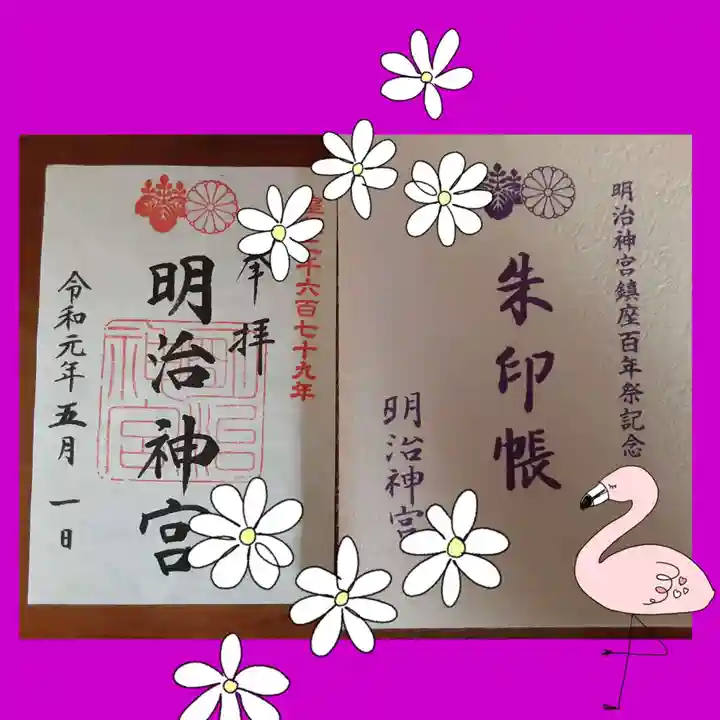 明治神宮鎮座百年祭記念
朱印帳
明治神宮
皇二千六百七十九年
奉拝
明治神宮
明治神宮
令和元年五月一日